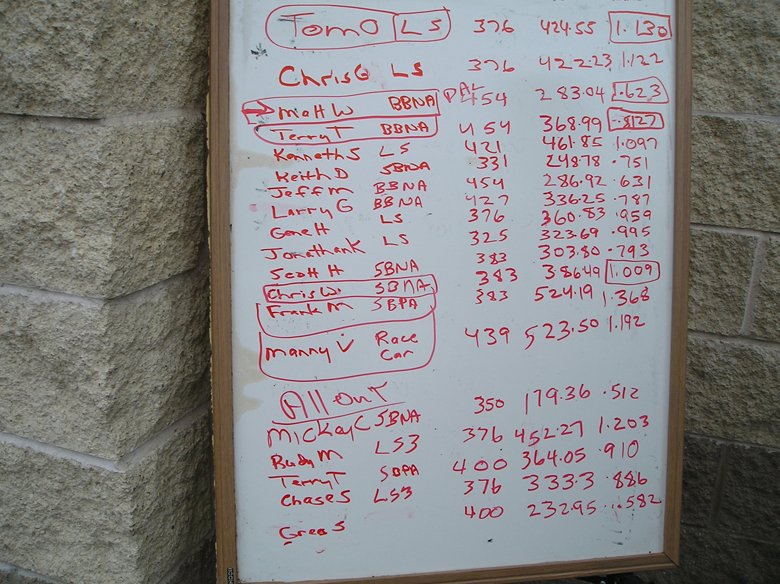 TomO LS 376 424.55 1.130
ChrisG LS 376 422.23 1.122
Matt W BBNA 454 283.04 .623
TerryT BBNA 454 368.99 .8127
KennethS LS 421 461.85 1.097
KeithD SBNA 331 248.78 .751
JeffM BBNA 454 286.92 .631
Larry G BBNA 427 336.25 .787
GeneH LS 376 360.83 .959
JonathanK LS 325 323.69 .995
Scott H SBNA 383 303.80 .793
ChrisW SBNA 383 386.49 1.009
Frank M SBPA 383 524.19 1.368
Manny V Race Car 439 523.50 1.192
All Out
MickeyC SBNA 350 179.36 .512
Rudy M LS3 376 452.27 1.203
TerryT SBPA 400 364.05 .910
ChaseS LS3 376 333.3 .886
Greg S 400 232.95 .582